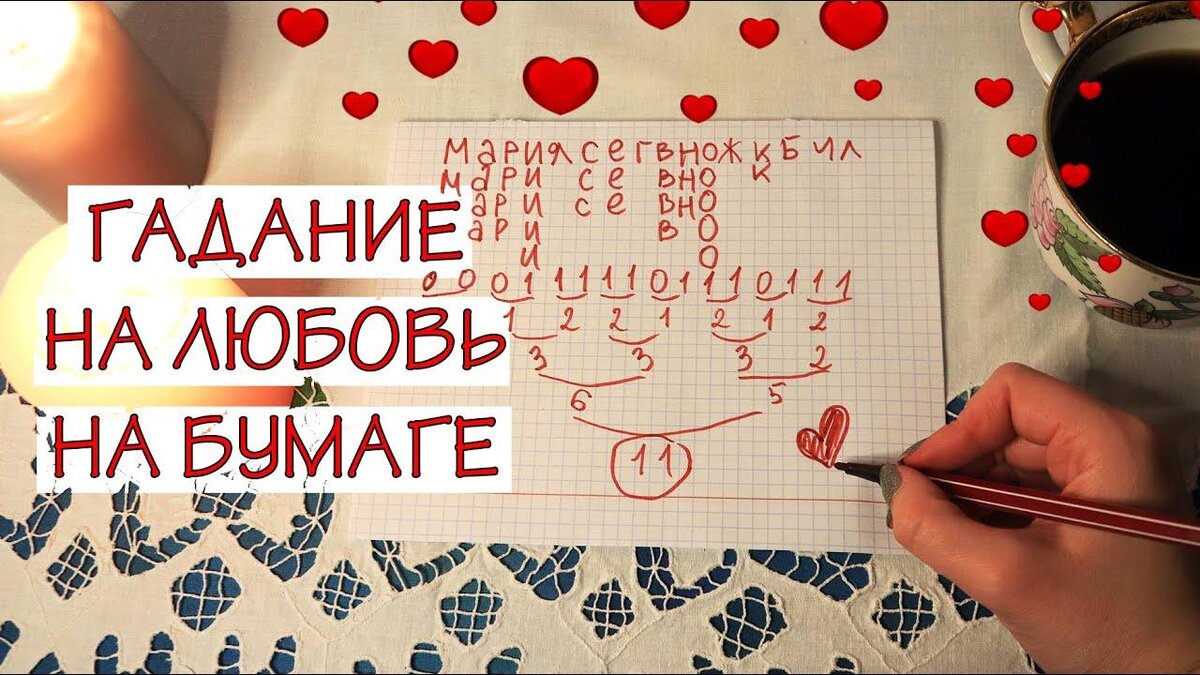 ГАДАНИЕ
НА ЛЮБОВЬ
НА БУМАГЕ
МАРИЯСЕГВНОЖКБЧЛ
МАРИ СЕ ВНО К
АРИ СЕ ВНО
АРИ В О
И О
0 0 01 11 11 01 11 01 11
1 2 2 1 2 1 2
3 3 3 2
6 5
11